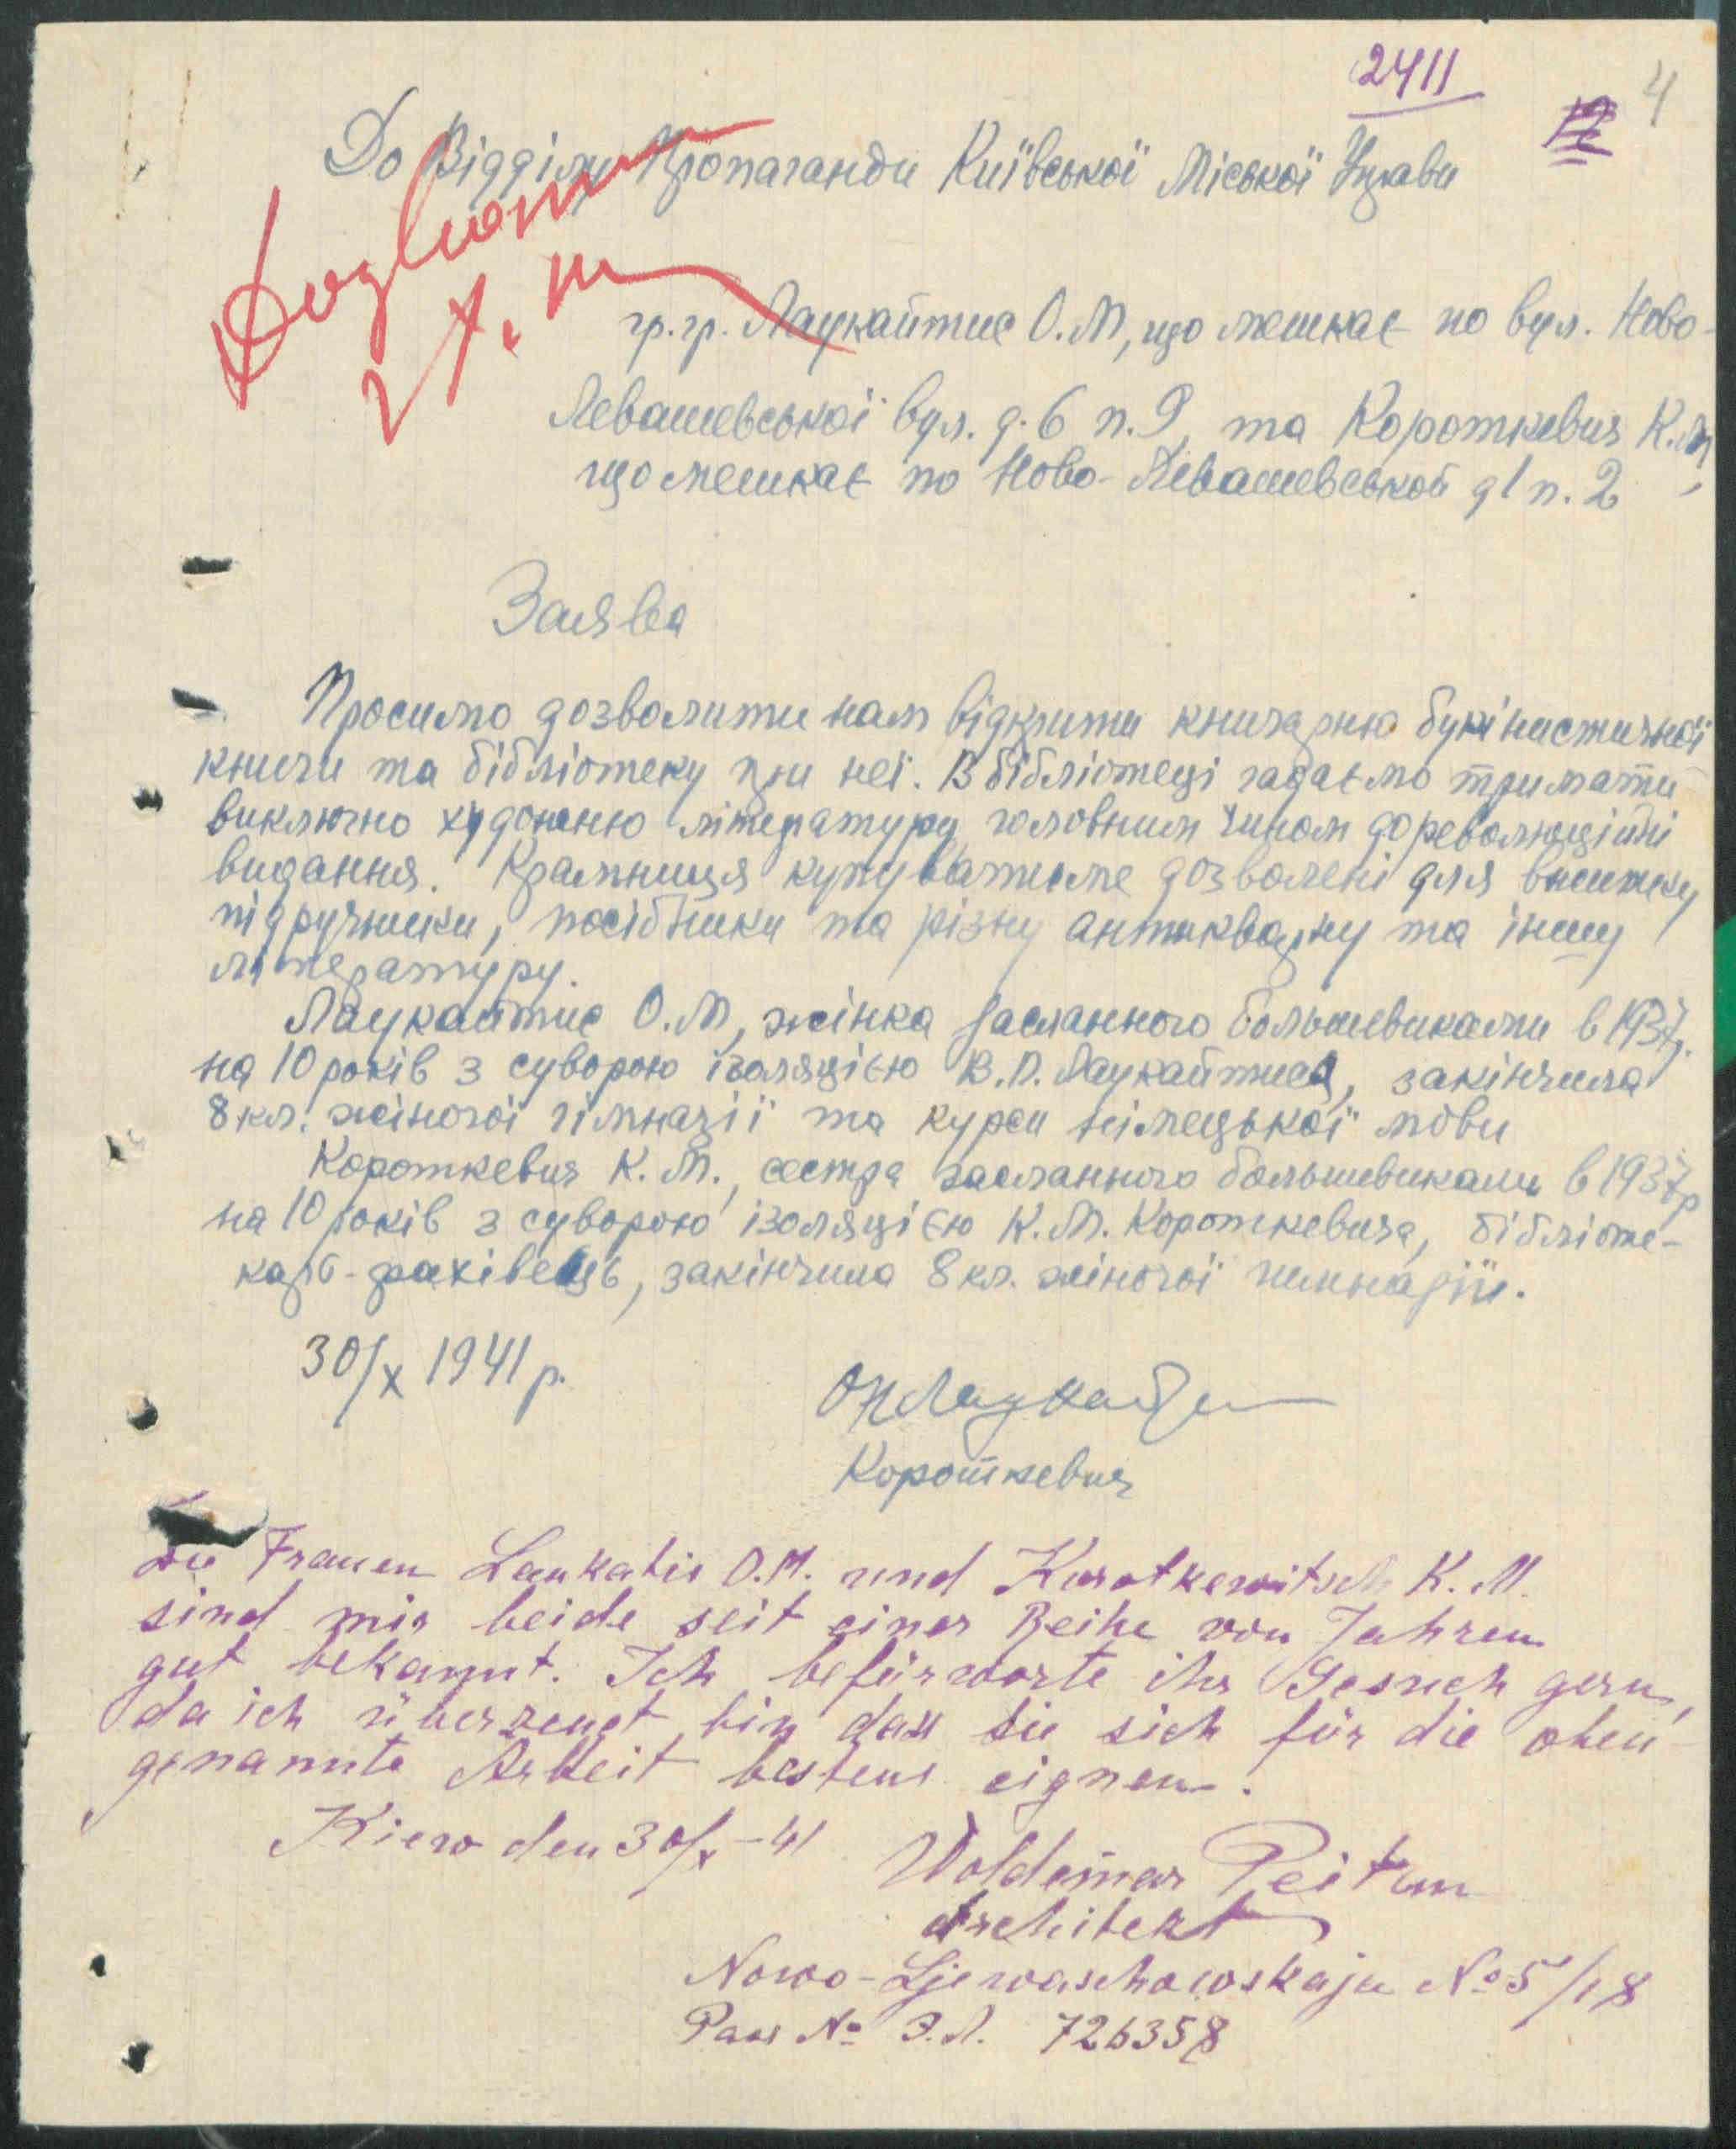 2411
4
До Відділу Пропаганди Київської Міської Управи
гр. гр. Лаукайтис О.М, що мешкає по вул. Ново-
Левашевської вул. д. 6 п. 9, та Короткевич К.М,
що мешкає по Ново-Левашевской д 1 п. 2
Заява
Просимо дозволити нам відкрити книгарню букіністичної
книги та бібліотеку при неї. В бібліотеці гадаємо тримати
виключно художню літературу, головним чином дореволюційні
видання. Крамниця купуватиме дозволені для вжитку
підручники, посібники та різну антикварну та іншу
літературу.
Лаукайтис О.М, жінка засланного большевиками в 1937р.
на 10 років з суворою ізоляцією В.П. Лаукайтиса, закінчила
8 кл. жіночої гімназії та курси німецької мови
Короткевич К. М., сестра засланного большевиками в 1937р
на 10 років з суворою ізоляцією К.М. Короткевича, бібліоте-
карь-фахівець, закінчила 8 кл. жіночої гимназіи.
30/X 1941 р.
Короткевич
Die Frauen Laukatis O.M. und Korotkewitsch K. M.
sind mir beide seit einer Reihe von Jahren
gut bekannt. Ich befürworte ihr Gesuch gern,
da ich überzeugt bin dass sie sich für die oben
genannte Arbeit bestens eignen.
Kiew den 30/X -41
Woldemar Peitan
Architekt
Nowo-Ljewaschowskaja No 5/18
Pass No Э.Л. 726358